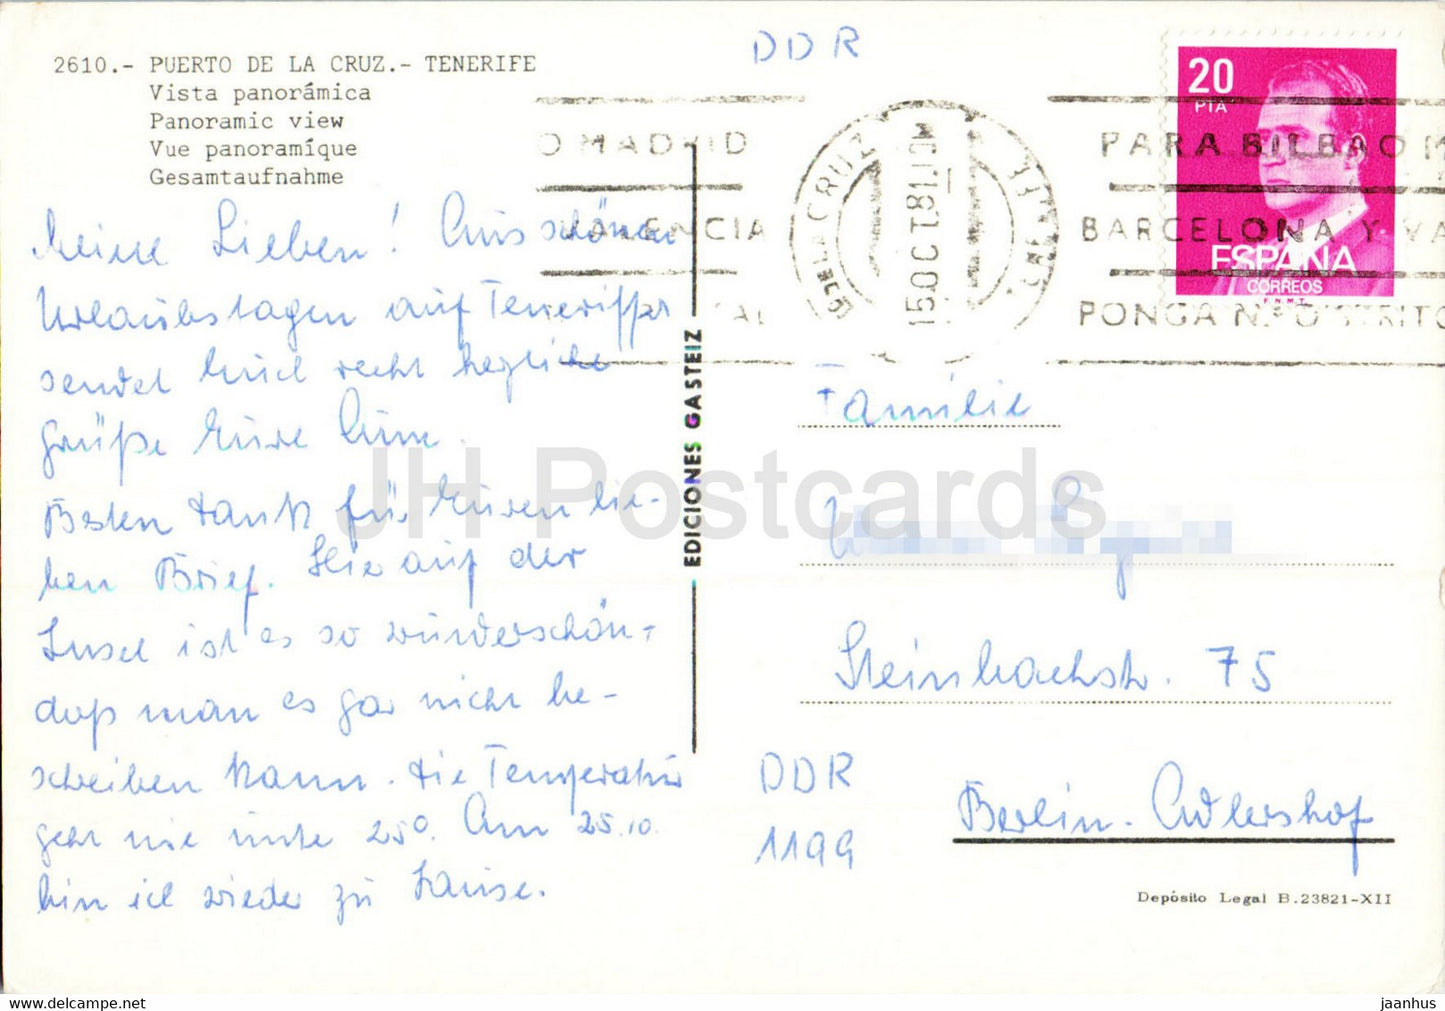 2610.- PUERTO DE LA CRUZ.- TENERIFE
Vista panorámica
Panoramic view
Vue panoramíque
Gesamtaufnahme
Meine Lieben! Aus schönen
Urlaubstagen auf Teneriffa
sendet Euch recht herzliche
Grüße Eure
Besten Dank für Euren lie-
ben Brief. Hie auf der
Insel ist es so wunderschön-
daß man es gar nicht be-
schreiben kann. Die Temperatur
geht nie unter 25°. Am 25.10.
bin ich wieder zu Hause.
EDICIONES GASTEIZ
DDR
20
PTA
ESPAÑA
CORREOS
F.N.M.T.
O MADRID
VALENCIA
DE LA CRUZ
15 OCT. 81. 10M
PARA BILBAO M
BARCELONA Y VA
PONGA N.º DISTRITO
Familie
Steinbachstr. 75
DDR
1199
Berlin-Adlershof
Depósito Legal B.23821-XII
JH Postcards
www.delcampe.net
jaanhus